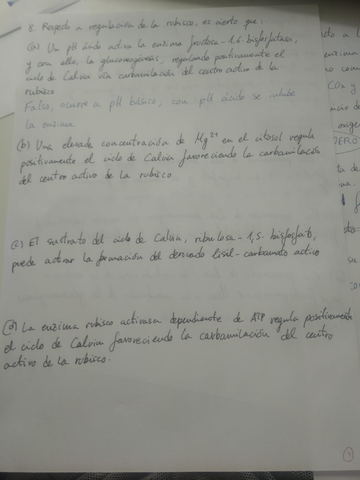 8. Respecto a regulación de la rubisco, es cierto que:
(a) Un pH ácido activa la enzima fructosa-1,6-bisfosfatasa,
y con ello, la gluconeogénesis, regulando positivamente el
ciclo de Calvin vía carbamilación del centro activo de la
rubisco
Falso, ocurre a pH básico, con pH ácido se inhibe
la enzima
(b) Una elevada concentración de Mg²⁺ en el citosol regula
positivamente el ciclo de Calvin favoreciendo la carbamilación
del centro activo de la rubisco
(c) El sustrato del ciclo de Calvin, ribulosa-1,5-bisfosfato,
puede activar la formación del derivado lisil-carbamato activo
(d) La enzima rubisco activasa dependiente de ATP regula positivamente
el ciclo de Calvin favoreciendo la carbamilación del centro
activo de la rubisco.